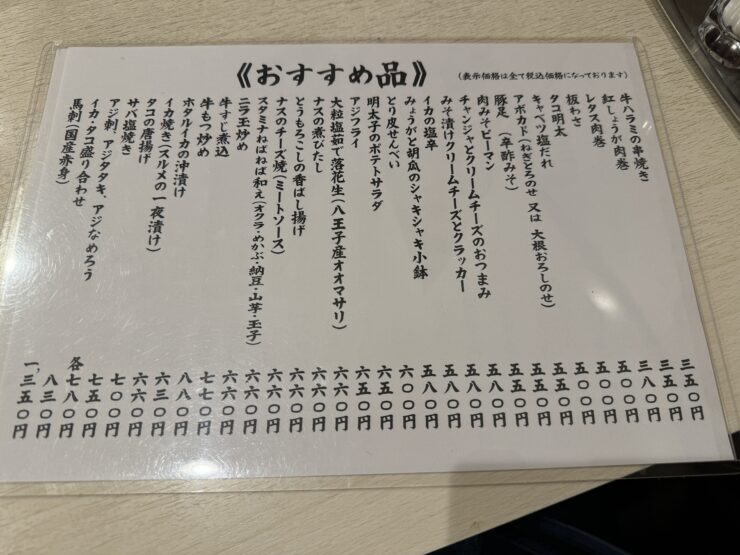 《おすすめ品》
(表示価格は全て税込価格になっております)
牛ハラミの串焼き 三五〇円
紅しょうが肉巻 三五〇円
レタス肉巻 三八〇円
板わさ 五〇〇円
タコ明太 五〇〇円
キャベツ塩だれ 五五〇円
アボカド(ねぎとろのせ 又は 大根おろしのせ) 五五〇円
豚足 (辛酢みそ) 五五〇円
肉みそピーマン 五五〇円
チャンジャとクリームチーズのおつまみ 五五〇円
みそ漬けクリームチーズとクラッカー 五八〇円
イカの塩辛 五八〇円
みょうがと胡瓜のシャキシャキ小鉢 五八〇円
とり皮せんべい 六〇〇円
明太子のポテトサラダ 五五〇円
アジフライ 六五〇円
大粒塩茹で落花生(八王子産オオマサリ) 六六〇円
ナスの煮びたし 六六〇円
とうもろこしの香ばし揚げ 六六〇円
ナスのチーズ焼(ミートソース) 六六〇円
スタミナねばねば和え(オクラ・めかぶ・納豆・山芋・玉子) 六六〇円
ニラ玉炒め 六六〇円
牛すじ煮込 七七〇円
牛もつ炒め 八八〇円
ホタルイカの沖漬け 六三〇円
イカ焼き(スルメの一夜漬け) 六六〇円
タコの唐揚げ 七〇〇円
サバ塩焼き 七五〇円
アジ刺、アジタタキ、アジなめろう 各七八〇円
イカ・タコ盛り合わせ 八三〇円
馬刺(国産赤身) 一、三五〇円